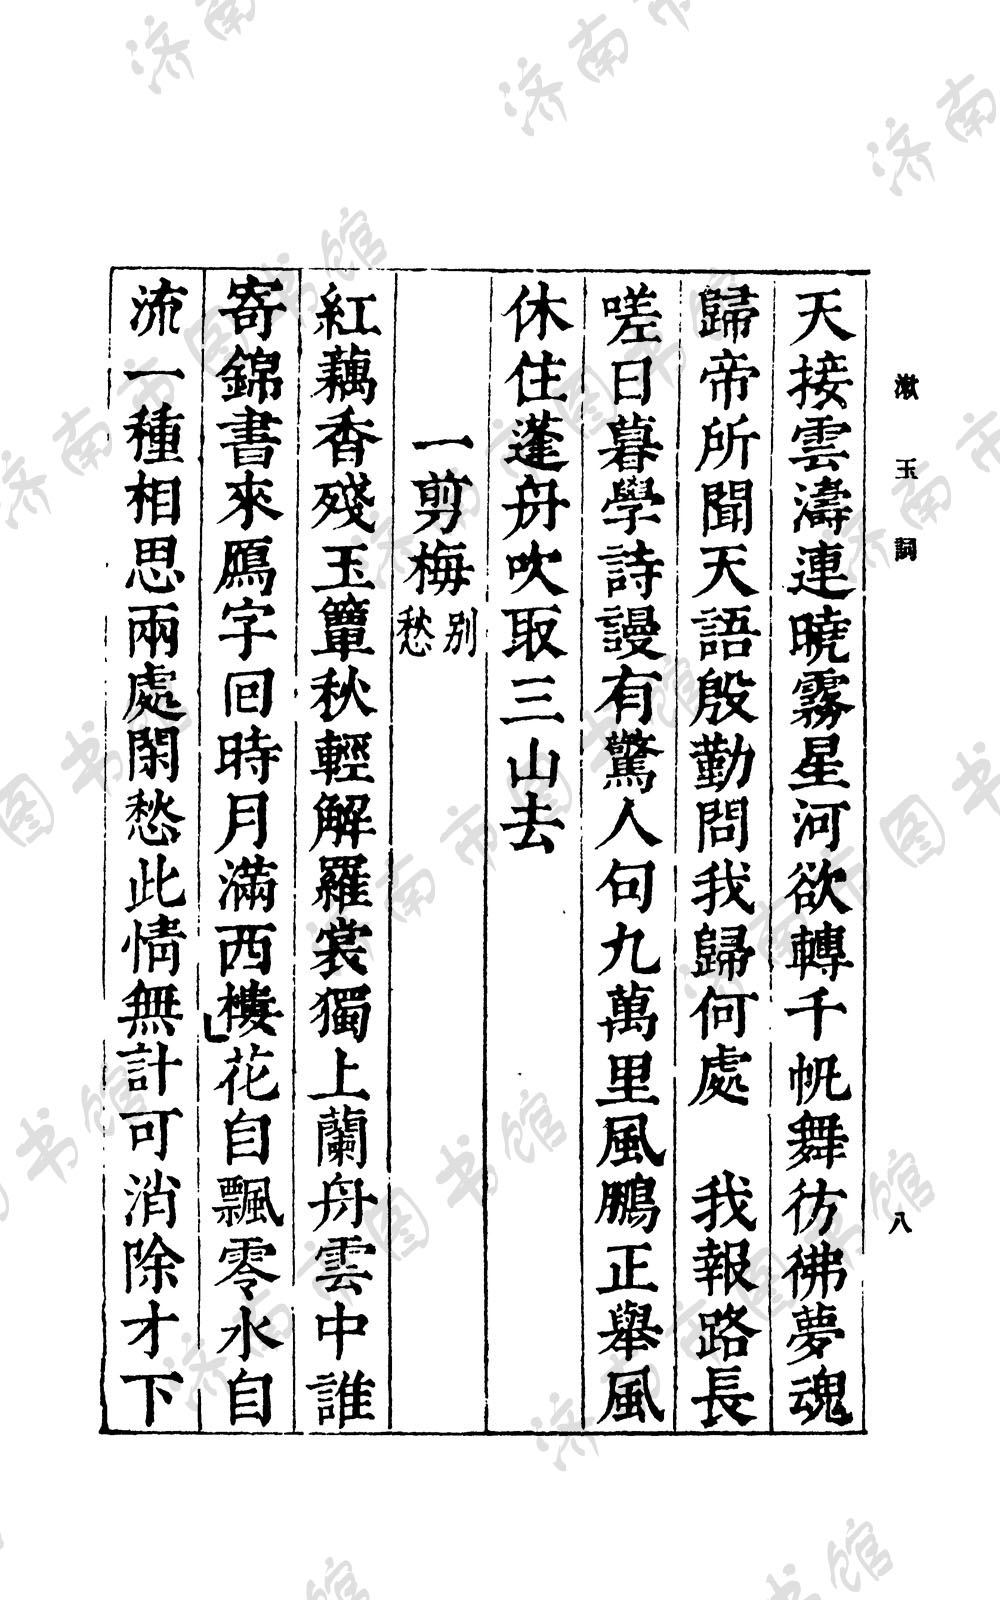 漱玉詞
八
天接雲濤連曉霧星河欲轉千帆舞彷彿夢魂
歸帝所聞天語殷勤問我歸何處　我報路長
嗟日暮學詩謾有驚人句九萬里風鵬正舉風
休住蓬舟吹取三山去
一剪梅別愁
紅藕香殘玉簟秋輕解羅裳獨上蘭舟雲中誰
寄錦書來鴈字回時月滿西樓花自飄零水自
流一種相思兩處閑愁此情無計可消除才下
济南市图书馆